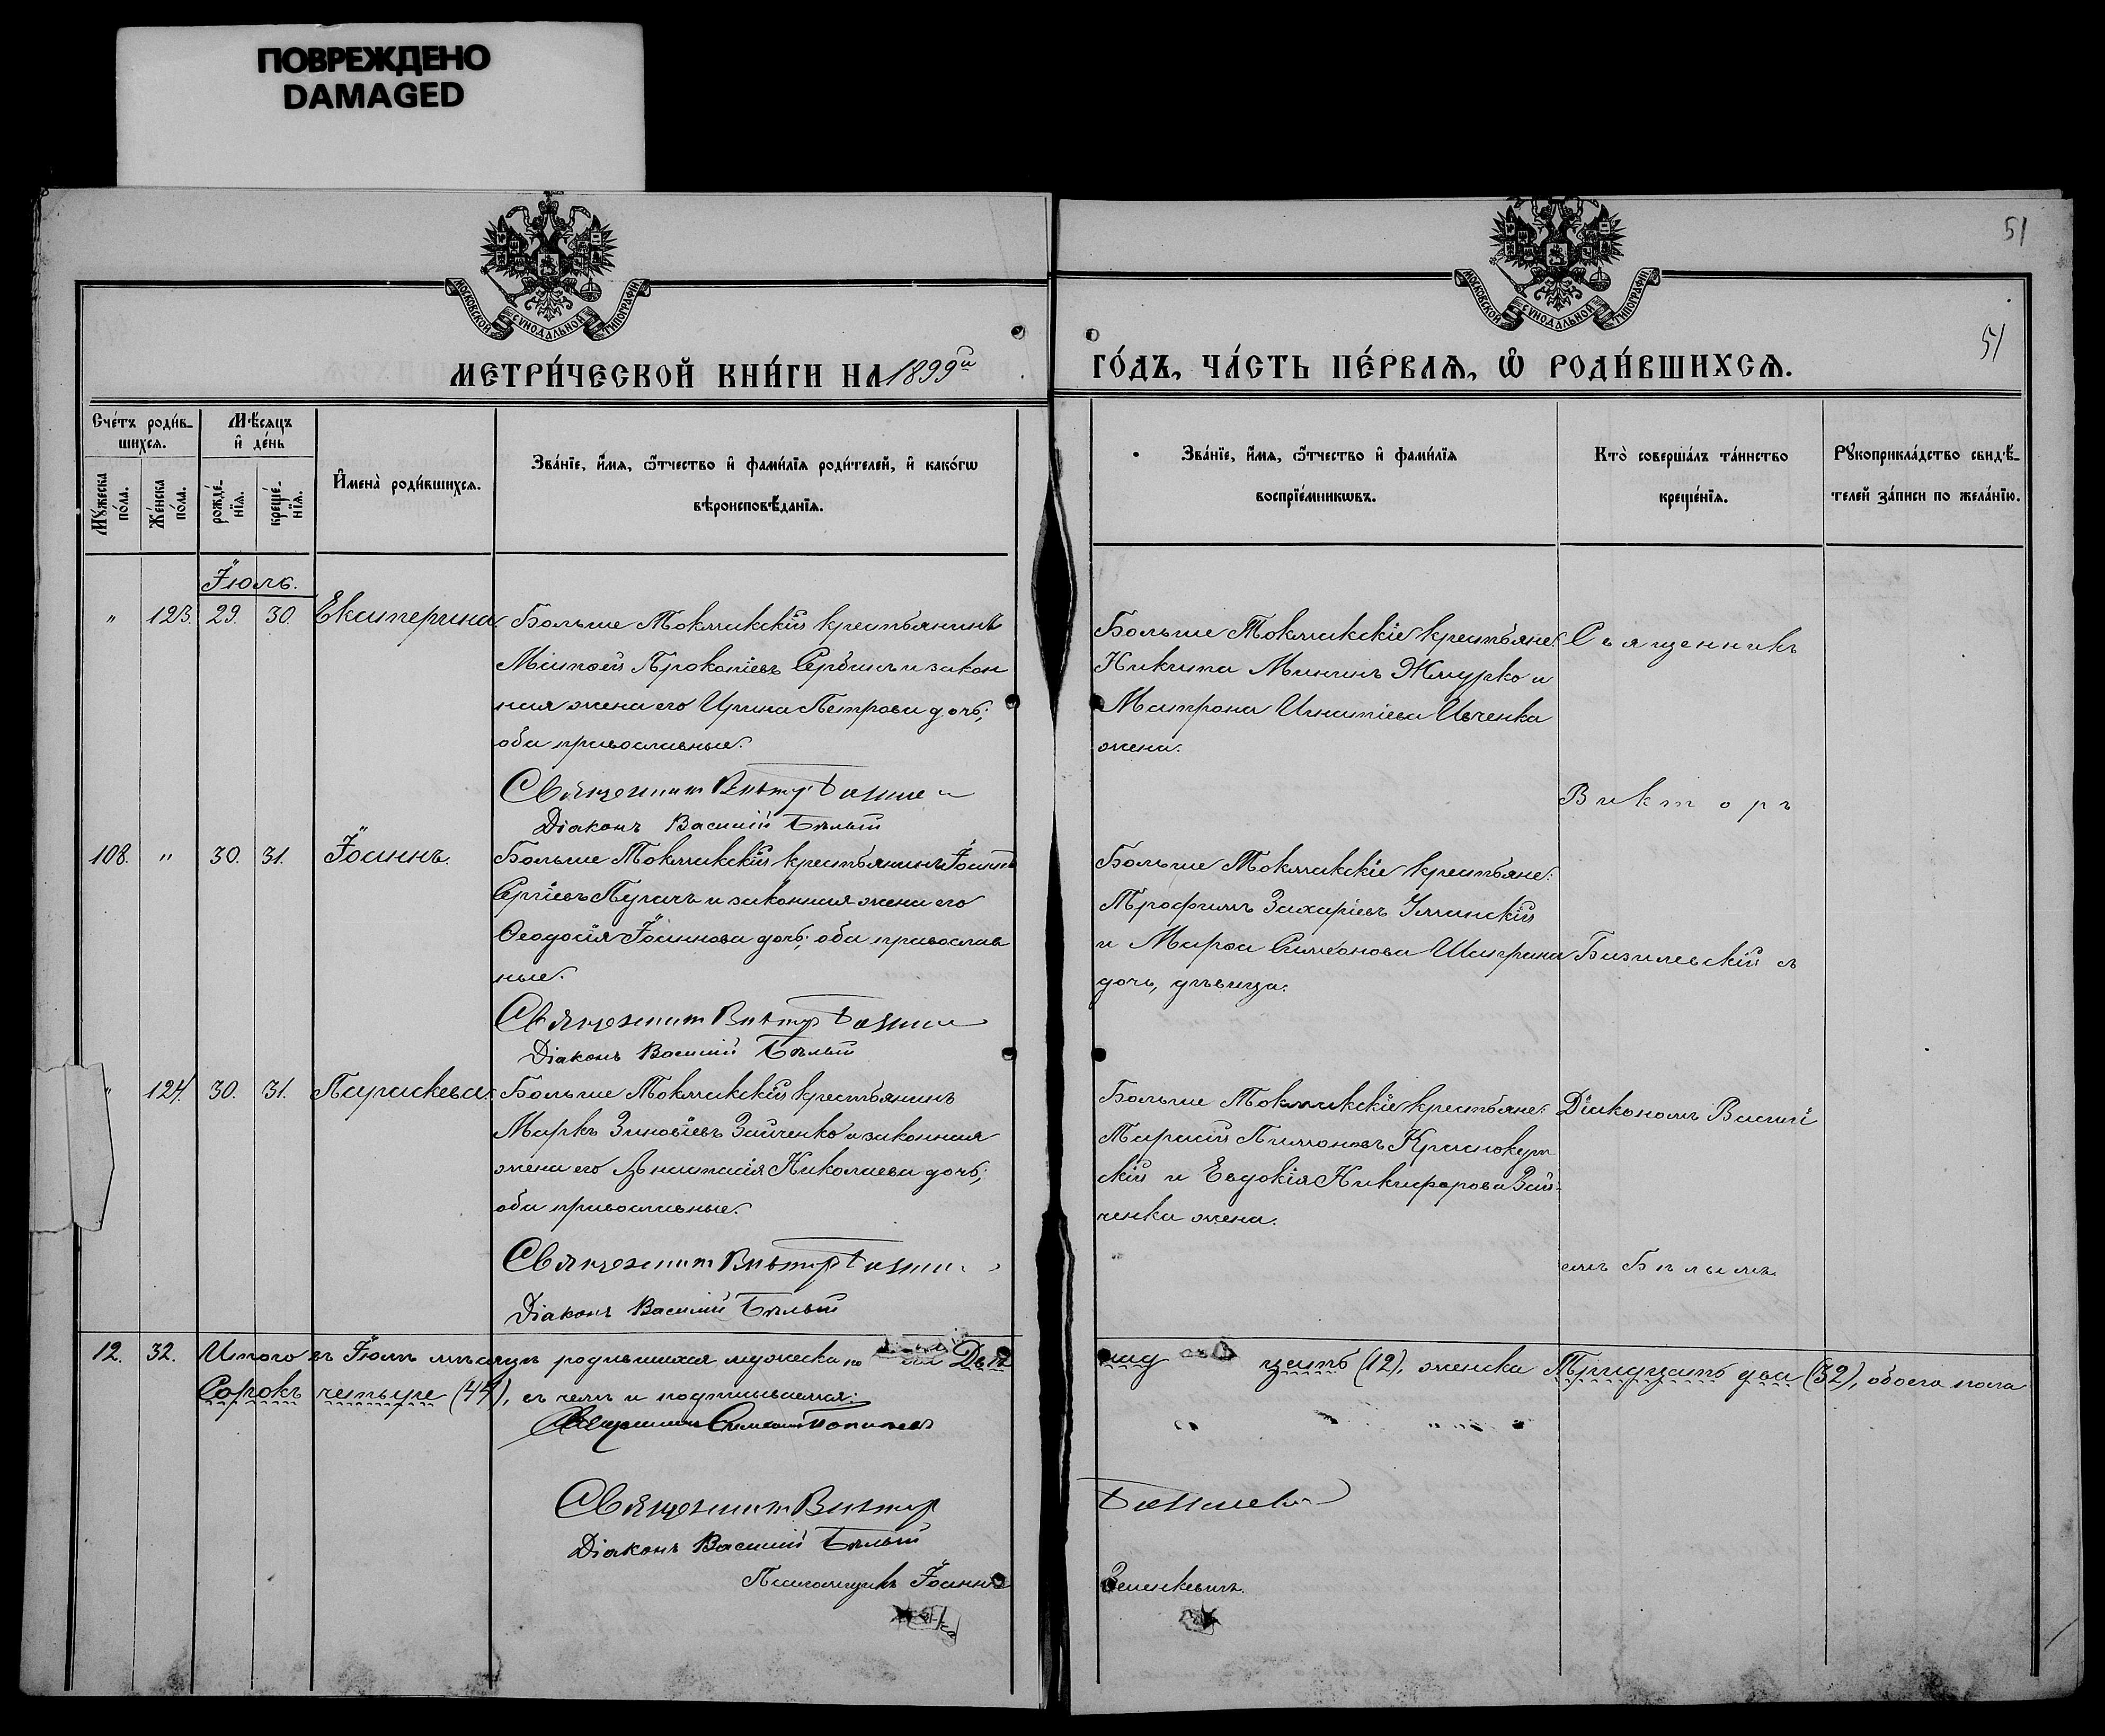 ПОВРЕЖДЕНО
DAMAGED
51
МОСКОВСКОЙ СѴНОДАЛЬНОЙ ТИПОГРАФІИ
МОСКОВСКОЙ СѴНОДАЛЬНОЙ ТИПОГРАФІИ
51
МЕТРИ́ЧЕСКОЙ КНИ́ГИ НА 1899й
ГО́ДЪ, ЧА́СТЬ ПЕ́РВАѦ, Ѡ РОДИ́ВШИХСѦ.
Сче́тъ роди́в-
шихся.
Мѣ́сяцъ
и де́нь
Мꙋ́жеска по́ла.
Же́нска по́ла.
рожде́-нїя.
креще́-нїя.
Имена̀ роди́вшихся.
Зва́нїе, и́мя, ѻ́тчество и фами́лїя роди́телей, и како́гѡ
вѣроисповѣ́данїя.
Зва́нїе, и́мя, ѻ́тчество и фами́лїя
воспрїе́мникѡвъ.
Кто̀ соверша́лъ та́инство
креще́нїя.
Рꙋкоприкла́дство свидѣ́-
телей за́писи по жела́нїю.
Іюль.
" 123. 29. 30. Екатерина
Больше Токмакскій крестьянинъ
Прокопіевъ Сербинъ и закон
ная жена его Ирина Петрова дочь;
оба православные.
Священникъ Викторъ
Діаконъ Василій Бѣлый
Больше Токмакскіе крестьяне:
Никита Мининъ Жмурко и
Матрона Игнатіева Ивченка
жена.
Священникъ
Викторъ
108. " 30. 31. Іоаннъ.
Больше Токмакскій крестьянинъ Іоаннъ
Сергіевъ Пугачъ и законная жена его
Ѳеодосія Іоаннова дочь; оба православ
ные.
Священникъ Викторъ
Діаконъ Василій Бѣлый
Больше Токмакскіе крестьяне:
Трофимъ Захаріевъ Уманскій
и Марѳа Симеонова Шаврина
дочь, дѣвица.
Базилевскій съ
" 124. 30. 31. Параскева.
Больше Токмакскій крестьянинъ
Маркъ Зиновіевъ Зайченко и законная
жена его Анастасія Николаева дочь;
оба православные.
Священникъ Викторъ
Діаконъ Василій Бѣлый
Больше Токмакскіе крестьяне:
Тарасій Пимоновъ Краснокут
скій и Евдокія Никифорова Зай-
ченка жена.
Діакономъ Василі
емъ Бѣлымъ
12. 32. Итого въ Іюлѣ мѣсяцѣ родившихся мужеска по Двѣ
над цать (12), женска Тридцать два (32), обоего пола
Сорокъ четыре (44), въ чемъ и подписываемся:
Священникъ Симеонъ
Священникъ Викторъ
Діаконъ Василій Бѣлый
Псаломщикъ Іоаннъ
Зеленкевичъ.